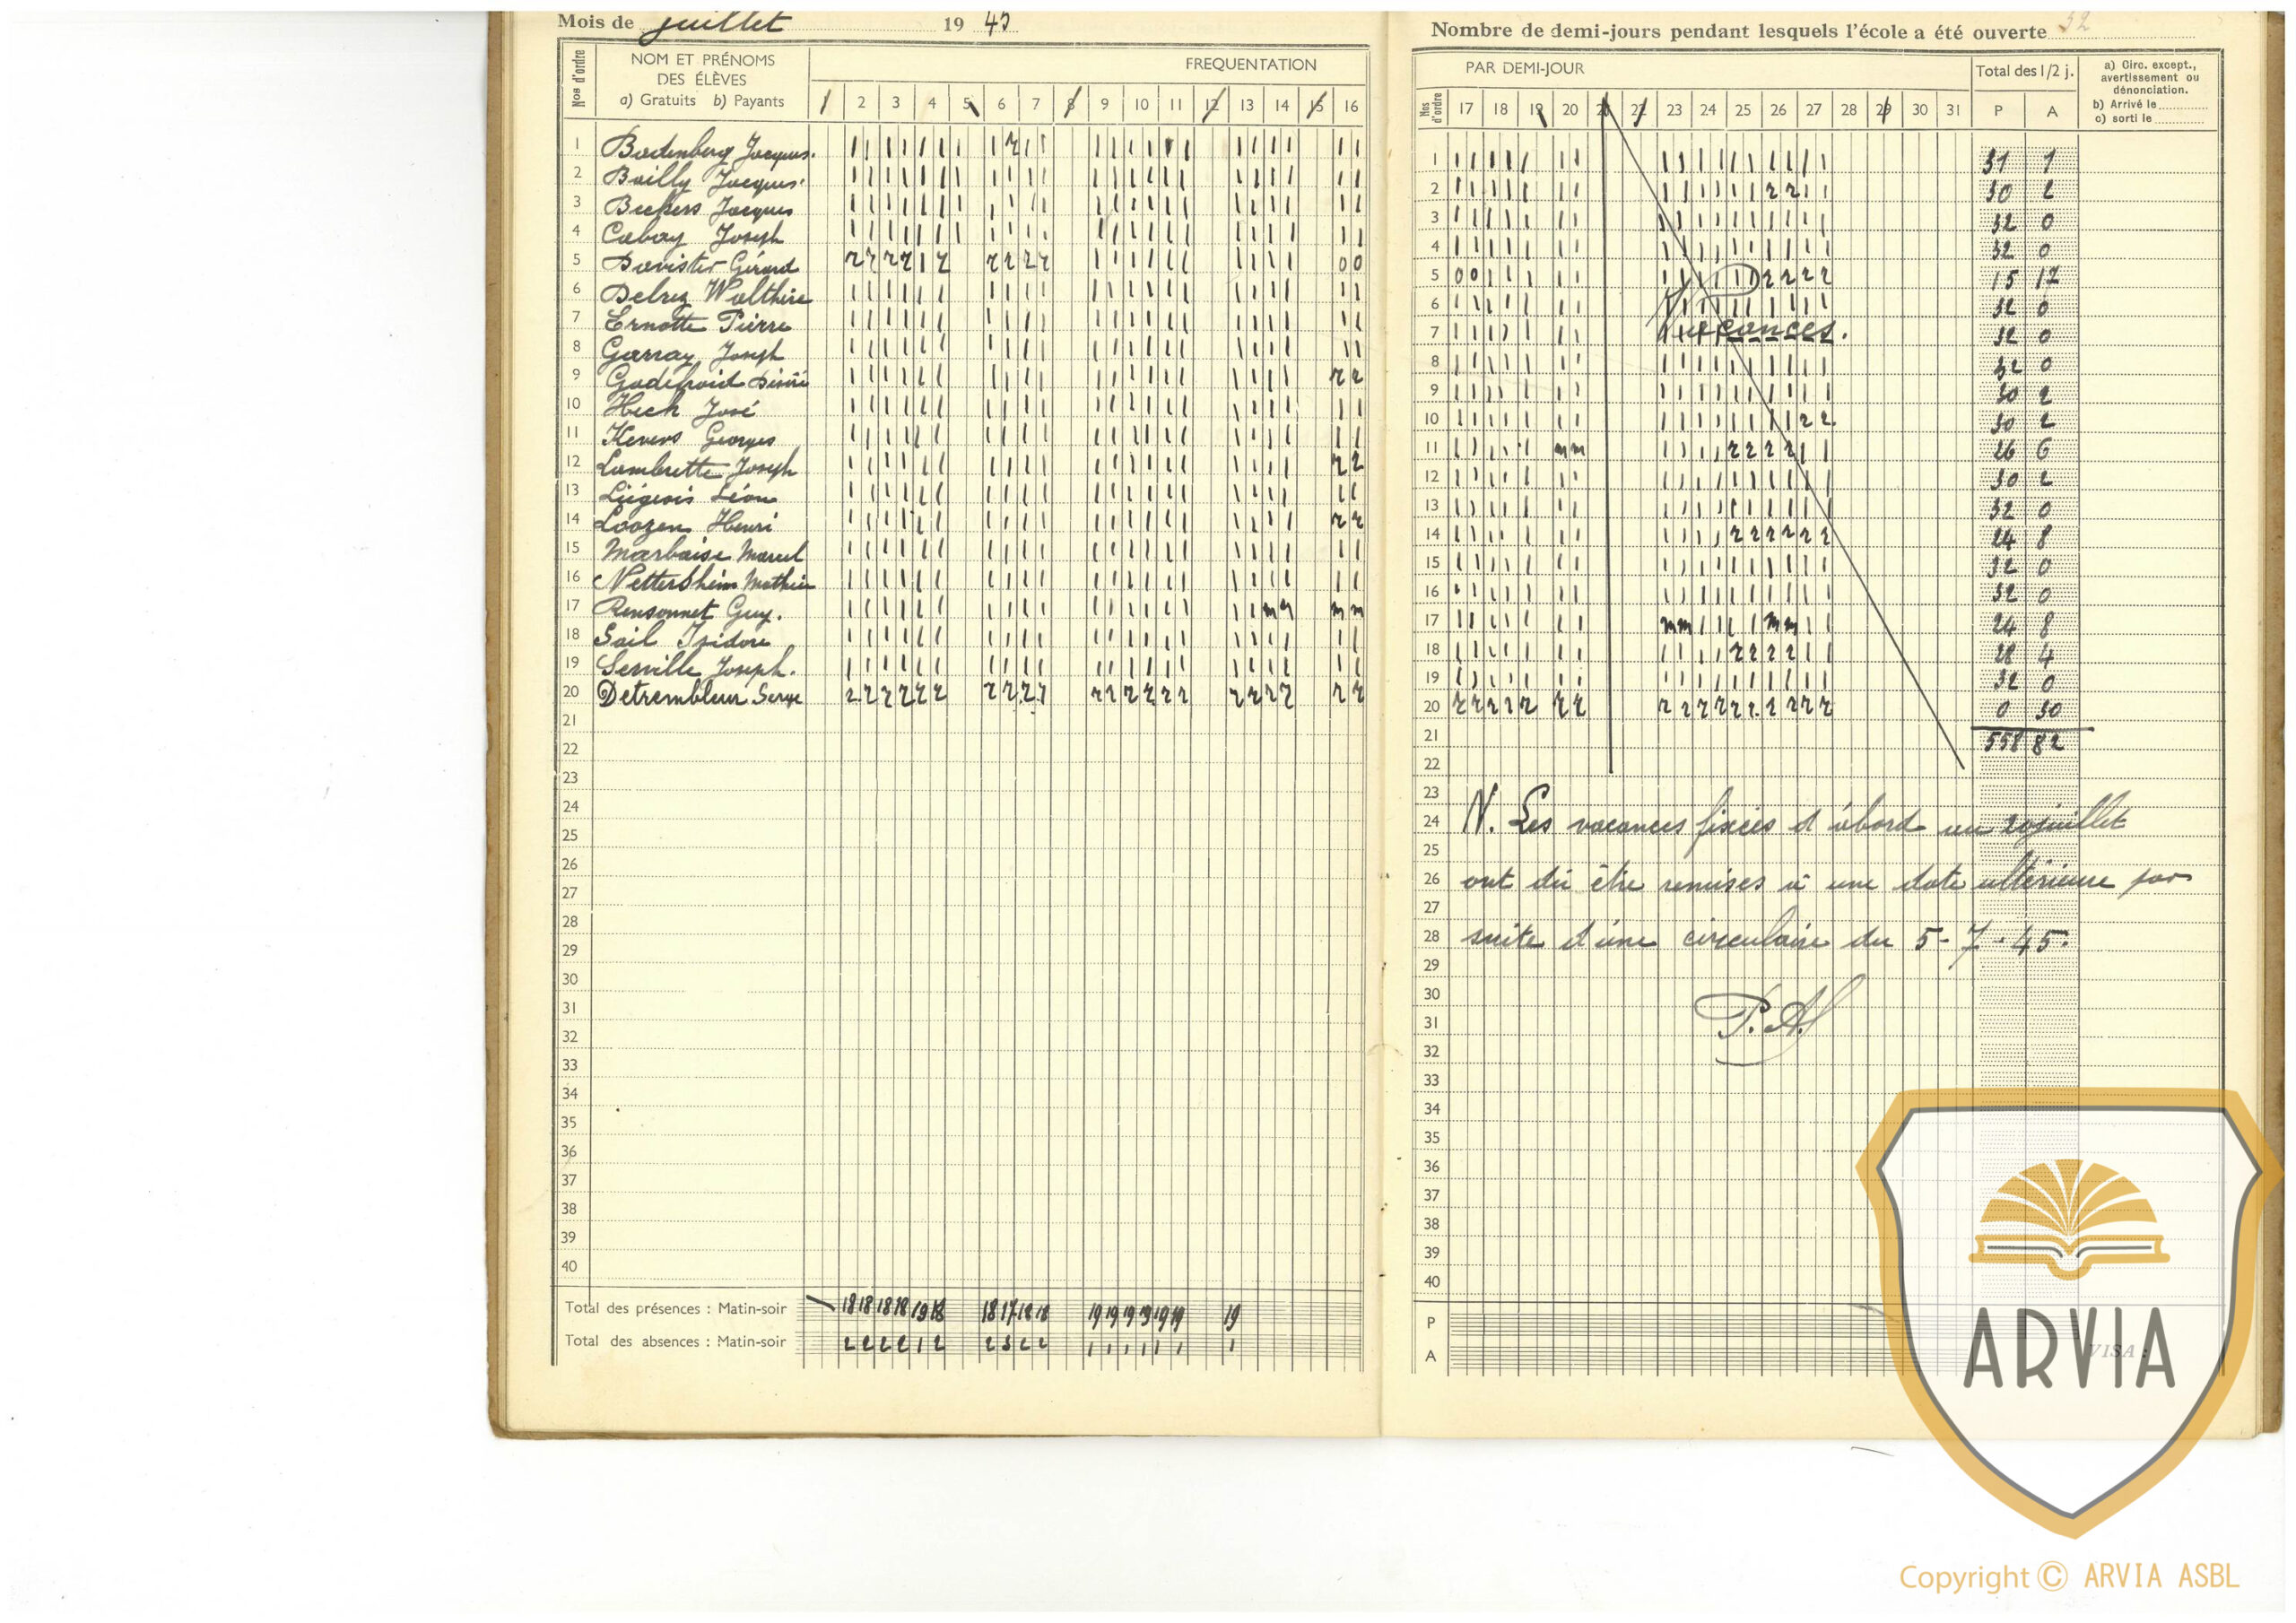 Mois de juillet 1945
Nos d'ordre
NOM ET PRÉNOMS
DES ÉLÈVES
a) Gratuits b) Payants
FREQUENTATION
1 2 3 4 5 6 7 8 9 10 11 12 13 14 15 16
1 Bodenberg Jacques.
2 Bailly Jacques.
3 Beckers Jacques
4 Cabay Joseph
5 Davister Gérard
6 Delrez Walthère
7 Ernotte Pierre
8 Garray Joseph
9 Godefroid Désiré
10 Heck José
11 Kevers Georges
12 Lambrette Joseph
13 Liégeois Léon
14 Loozen Henri
15 Marbaise Marcel
16 Nettersheim Mathieu
17 Rensonnet Guy.
18 Sail Isidore
19 Serville Joseph.
20 Detrembleur Serge
21
22
23
24
25
26
27
28
29
30
31
32
33
34
35
36
37
38
39
40
Total des présences : Matin-soir 18 18 18 18 19 18 18 17 18 18 19 19 19 19 19 19 19
Total des absences : Matin-soir 2 2 2 2 1 2 2 3 2 2 1 1 1 1 1 1 1
Nombre de demi-jours pendant lesquels l'école a été ouverte 32
Nos d'ordre
PAR DEMI-JOUR
17 18 19 20 21 22 23 24 25 26 27 28 29 30 31
Total des 1/2 j.
P A
a) Circ. except.,
avertissement ou
dénonciation.
b) Arrivé le
c) sorti le
1 31 1
2 30 2
3 32 0
4 32 0
5 15 17
6 32 0
7 Vacances. 32 0
8 32 0
9 30 2
10 30 2
11 26 6
12 30 2
13 32 0
14 24 8
15 32 0
16 32 0
17 24 8
18 28 4
19 32 0
20 0 30
21 558 82
22
23
24 N. Les vacances fixées d'abord au 20 juillet
25
26 ont dû être remises à une date ultérieure par
27
28 suite d'une circulaire du 5-7-45.
29
30
31 P.A.
32
33
34
35
36
37
38
39
40
P
A
VISA :
ARVIA
Copyright © ARVIA ASBL